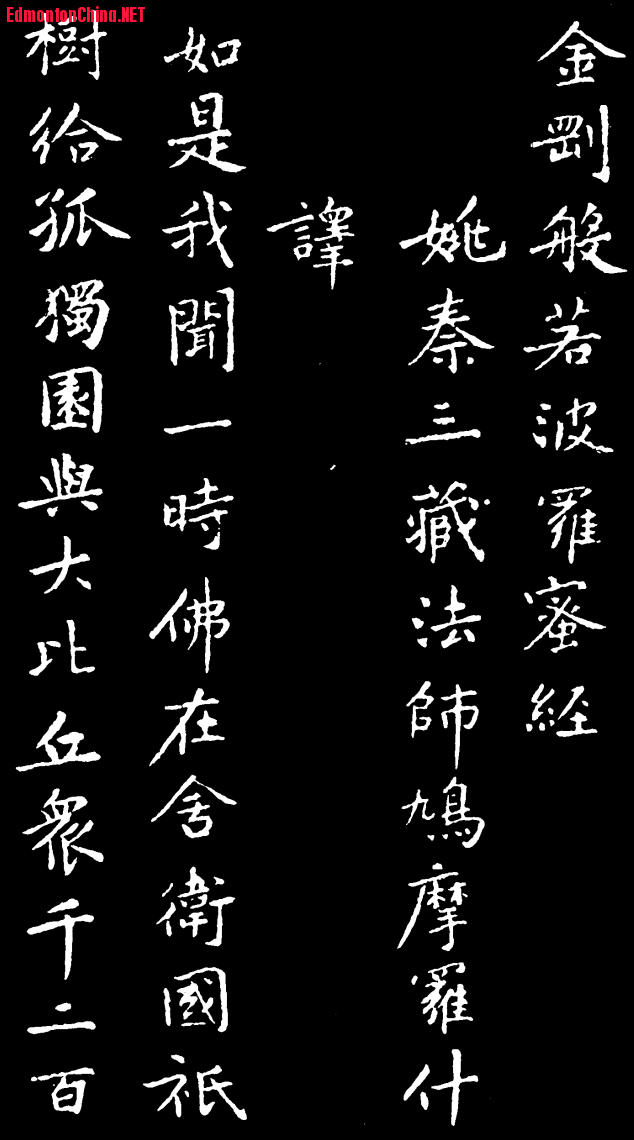 EdmontonChina.NET
金剛般若波羅蜜經
姚秦三藏法師鳩摩羅什
譯
如是我聞一時佛在舍衛國祇
樹給孤獨園與大比丘衆千二百